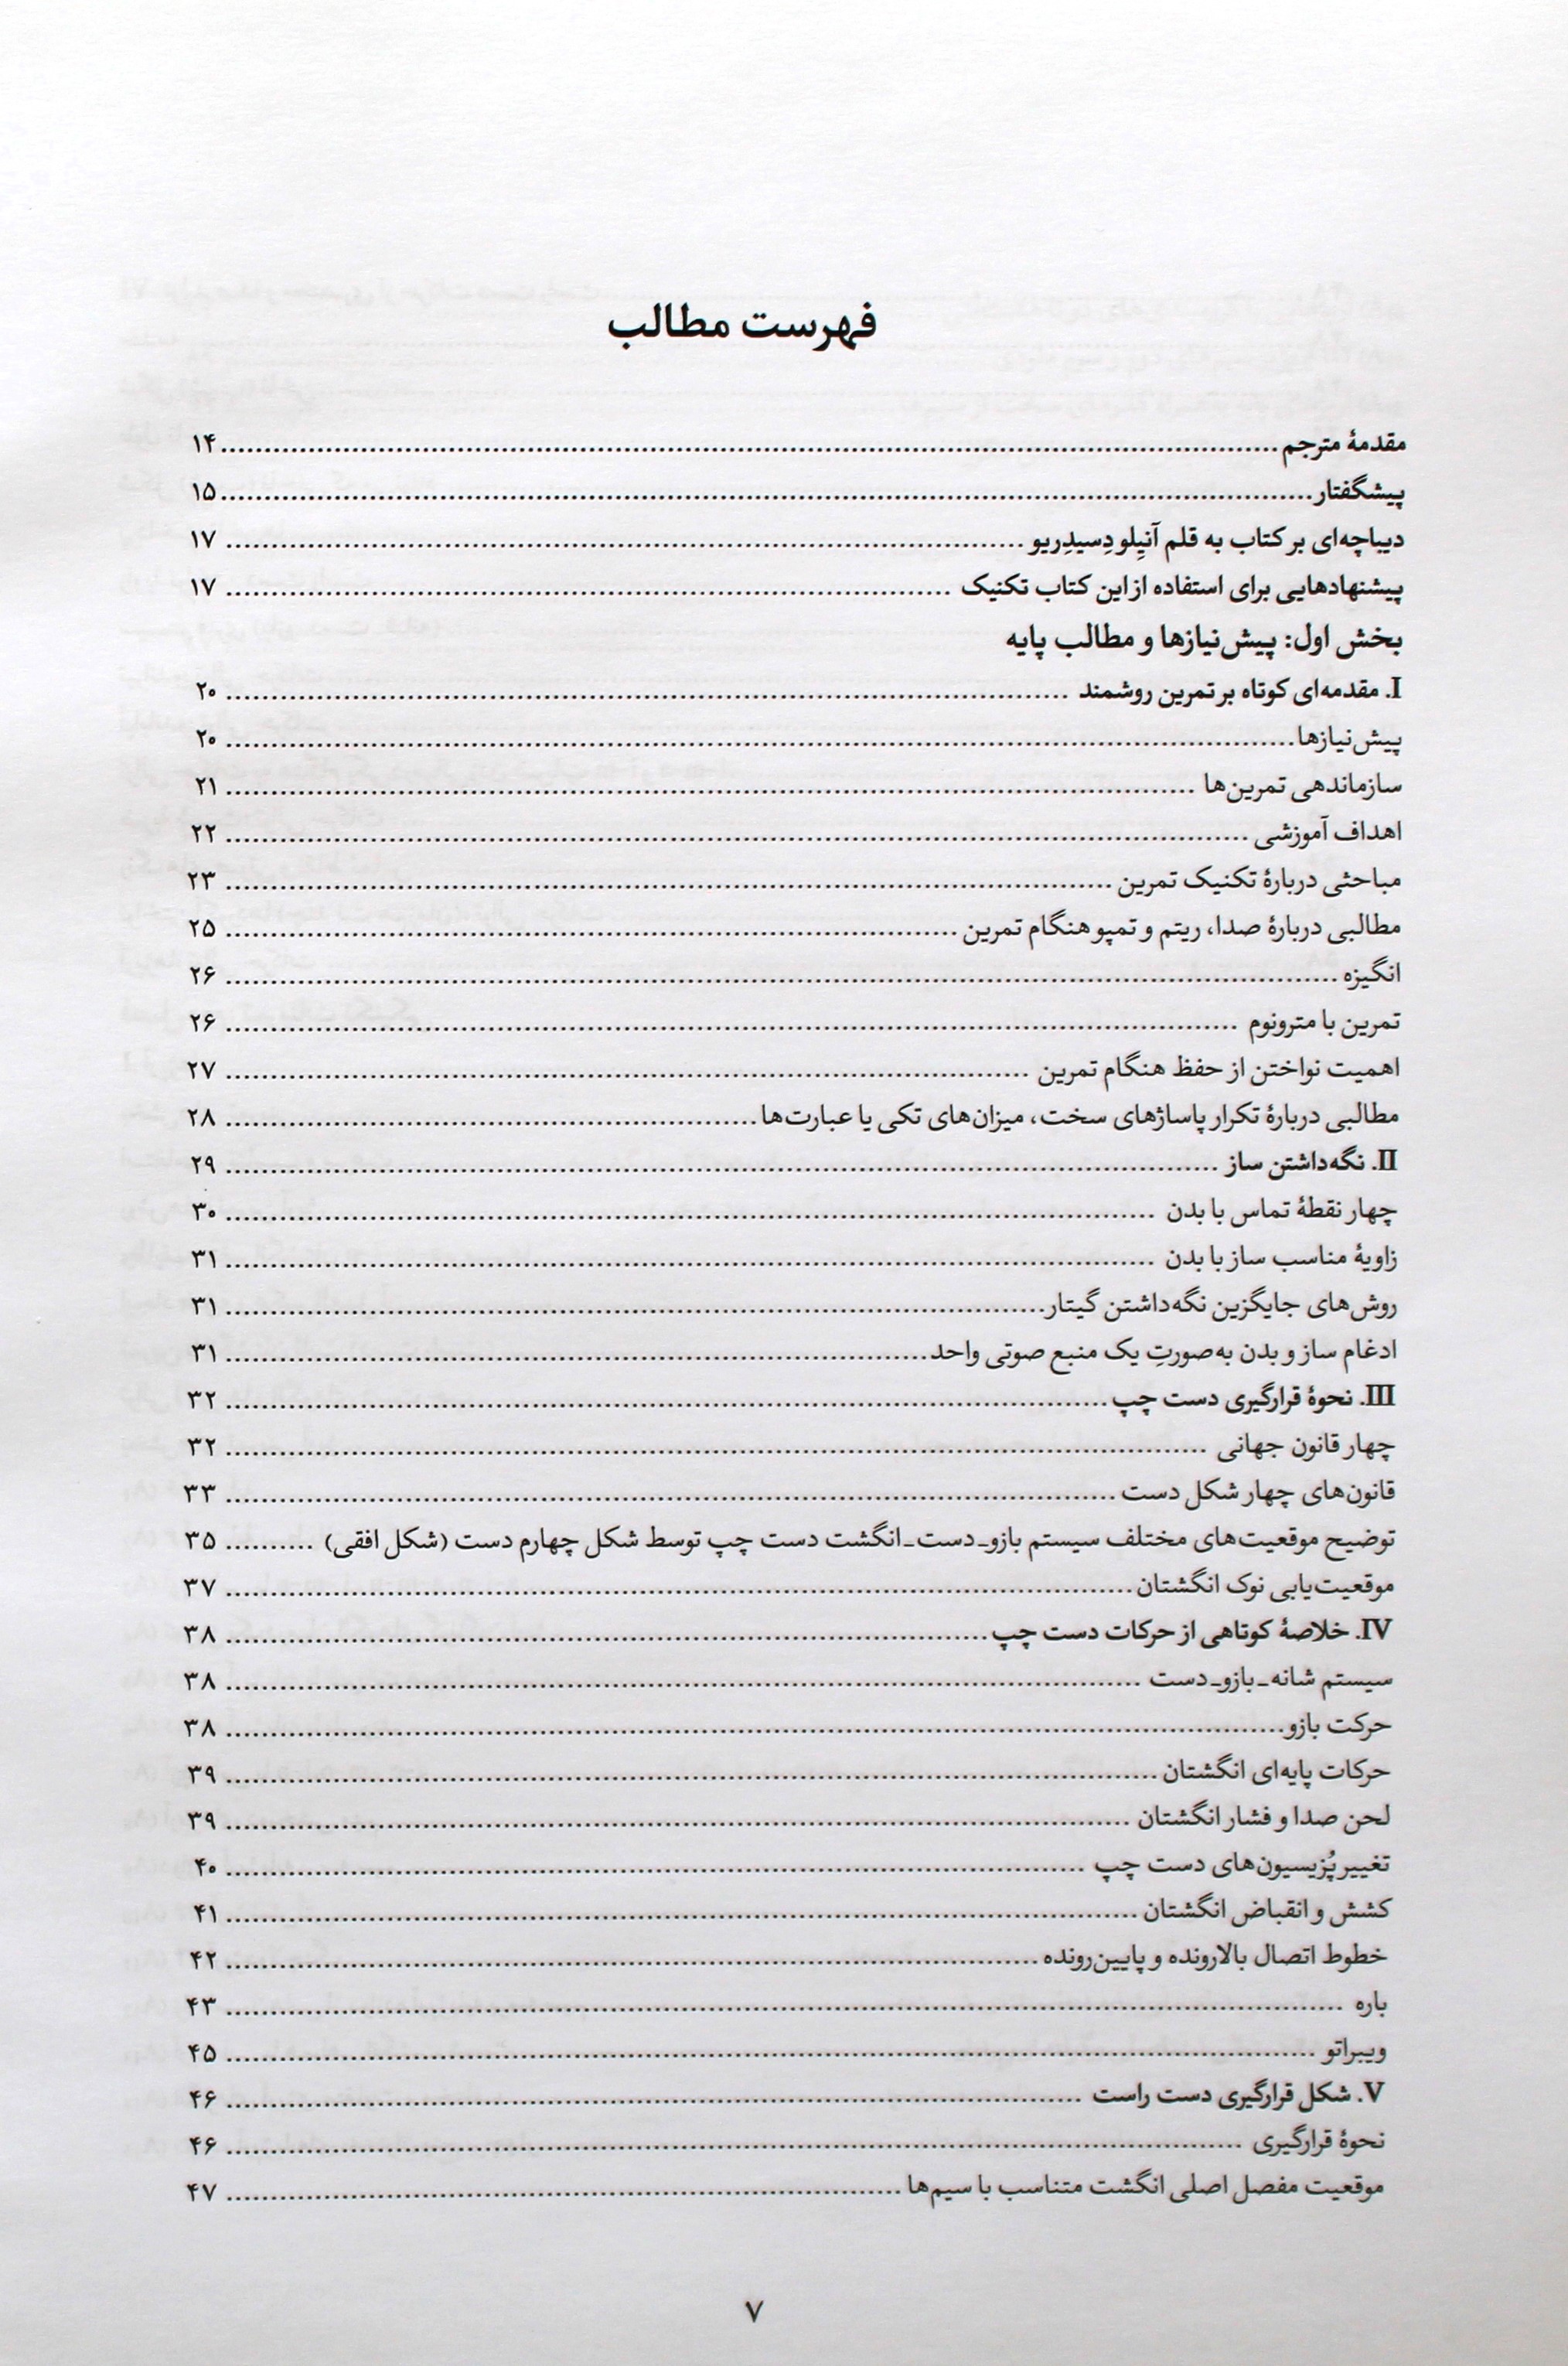 فهرست مطالب
مقدمهٔ مترجم ........ ۱۴
پیشگفتار ........ ۱۵
دیباچه‌ای بر کتاب به قلم آنیِلو دِسیدِریو ........ ۱۷
پیشنهادهایی برای استفاده از این کتاب تکنیک ........ ۱۷
بخش اول: پیش‌نیازها و مطالب پایه
I. مقدمه‌ای کوتاه بر تمرین روشمند ........ ۲۰
پیش‌نیازها ........ ۲۰
سازماندهی تمرین‌ها ........ ۲۱
اهداف آموزشی ........ ۲۲
مباحثی دربارهٔ تکنیک تمرین ........ ۲۳
مطالبی دربارهٔ صدا، ریتم و تمپو هنگام تمرین ........ ۲۵
انگیزه ........ ۲۶
تمرین با مترونوم ........ ۲۶
اهمیت نواختن از حفظ هنگام تمرین ........ ۲۷
مطالبی دربارهٔ تکرار پاساژهای سخت، میزان‌های تکی یا عبارت‌ها ........ ۲۸
II. نگه‌داشتن ساز ........ ۲۹
چهار نقطهٔ تماس با بدن ........ ۳۰
زاویهٔ مناسب ساز با بدن ........ ۳۱
روش‌های جایگزین نگه‌داشتن گیتار ........ ۳۱
ادغام ساز و بدن به‌صورتِ یک منبع صوتی واحد ........ ۳۱
III. نحوهٔ قرارگیری دست چپ ........ ۳۲
چهار قانون جهانی ........ ۳۲
قانون‌های چهار شکل دست ........ ۳۳
توضیح موقعیت‌های مختلف سیستم بازو-دست-انگشت دست چپ توسط شکل چهارم دست (شکل افقی) ........ ۳۵
موقعیت‌یابی نوک انگشتان ........ ۳۷
IV. خلاصهٔ کوتاهی از حرکات دست چپ ........ ۳۸
سیستم شانه-بازو-دست ........ ۳۸
حرکت بازو ........ ۳۸
حرکات پایه‌ای انگشتان ........ ۳۹
لحن صدا و فشار انگشتان ........ ۳۹
تغییر پُزیسیون‌های دست چپ ........ ۴۰
کشش و انقباض انگشتان ........ ۴۱
خطوط اتصال بالارونده و پایین‌رونده ........ ۴۲
باره ........ ۴۳
ویبراتو ........ ۴۵
V. شکل قرارگیری دست راست ........ ۴۶
نحوهٔ قرارگیری ........ ۴۶
موقعیت مفصل اصلی انگشت متناسب با سیم‌ها ........ ۴۷
۷